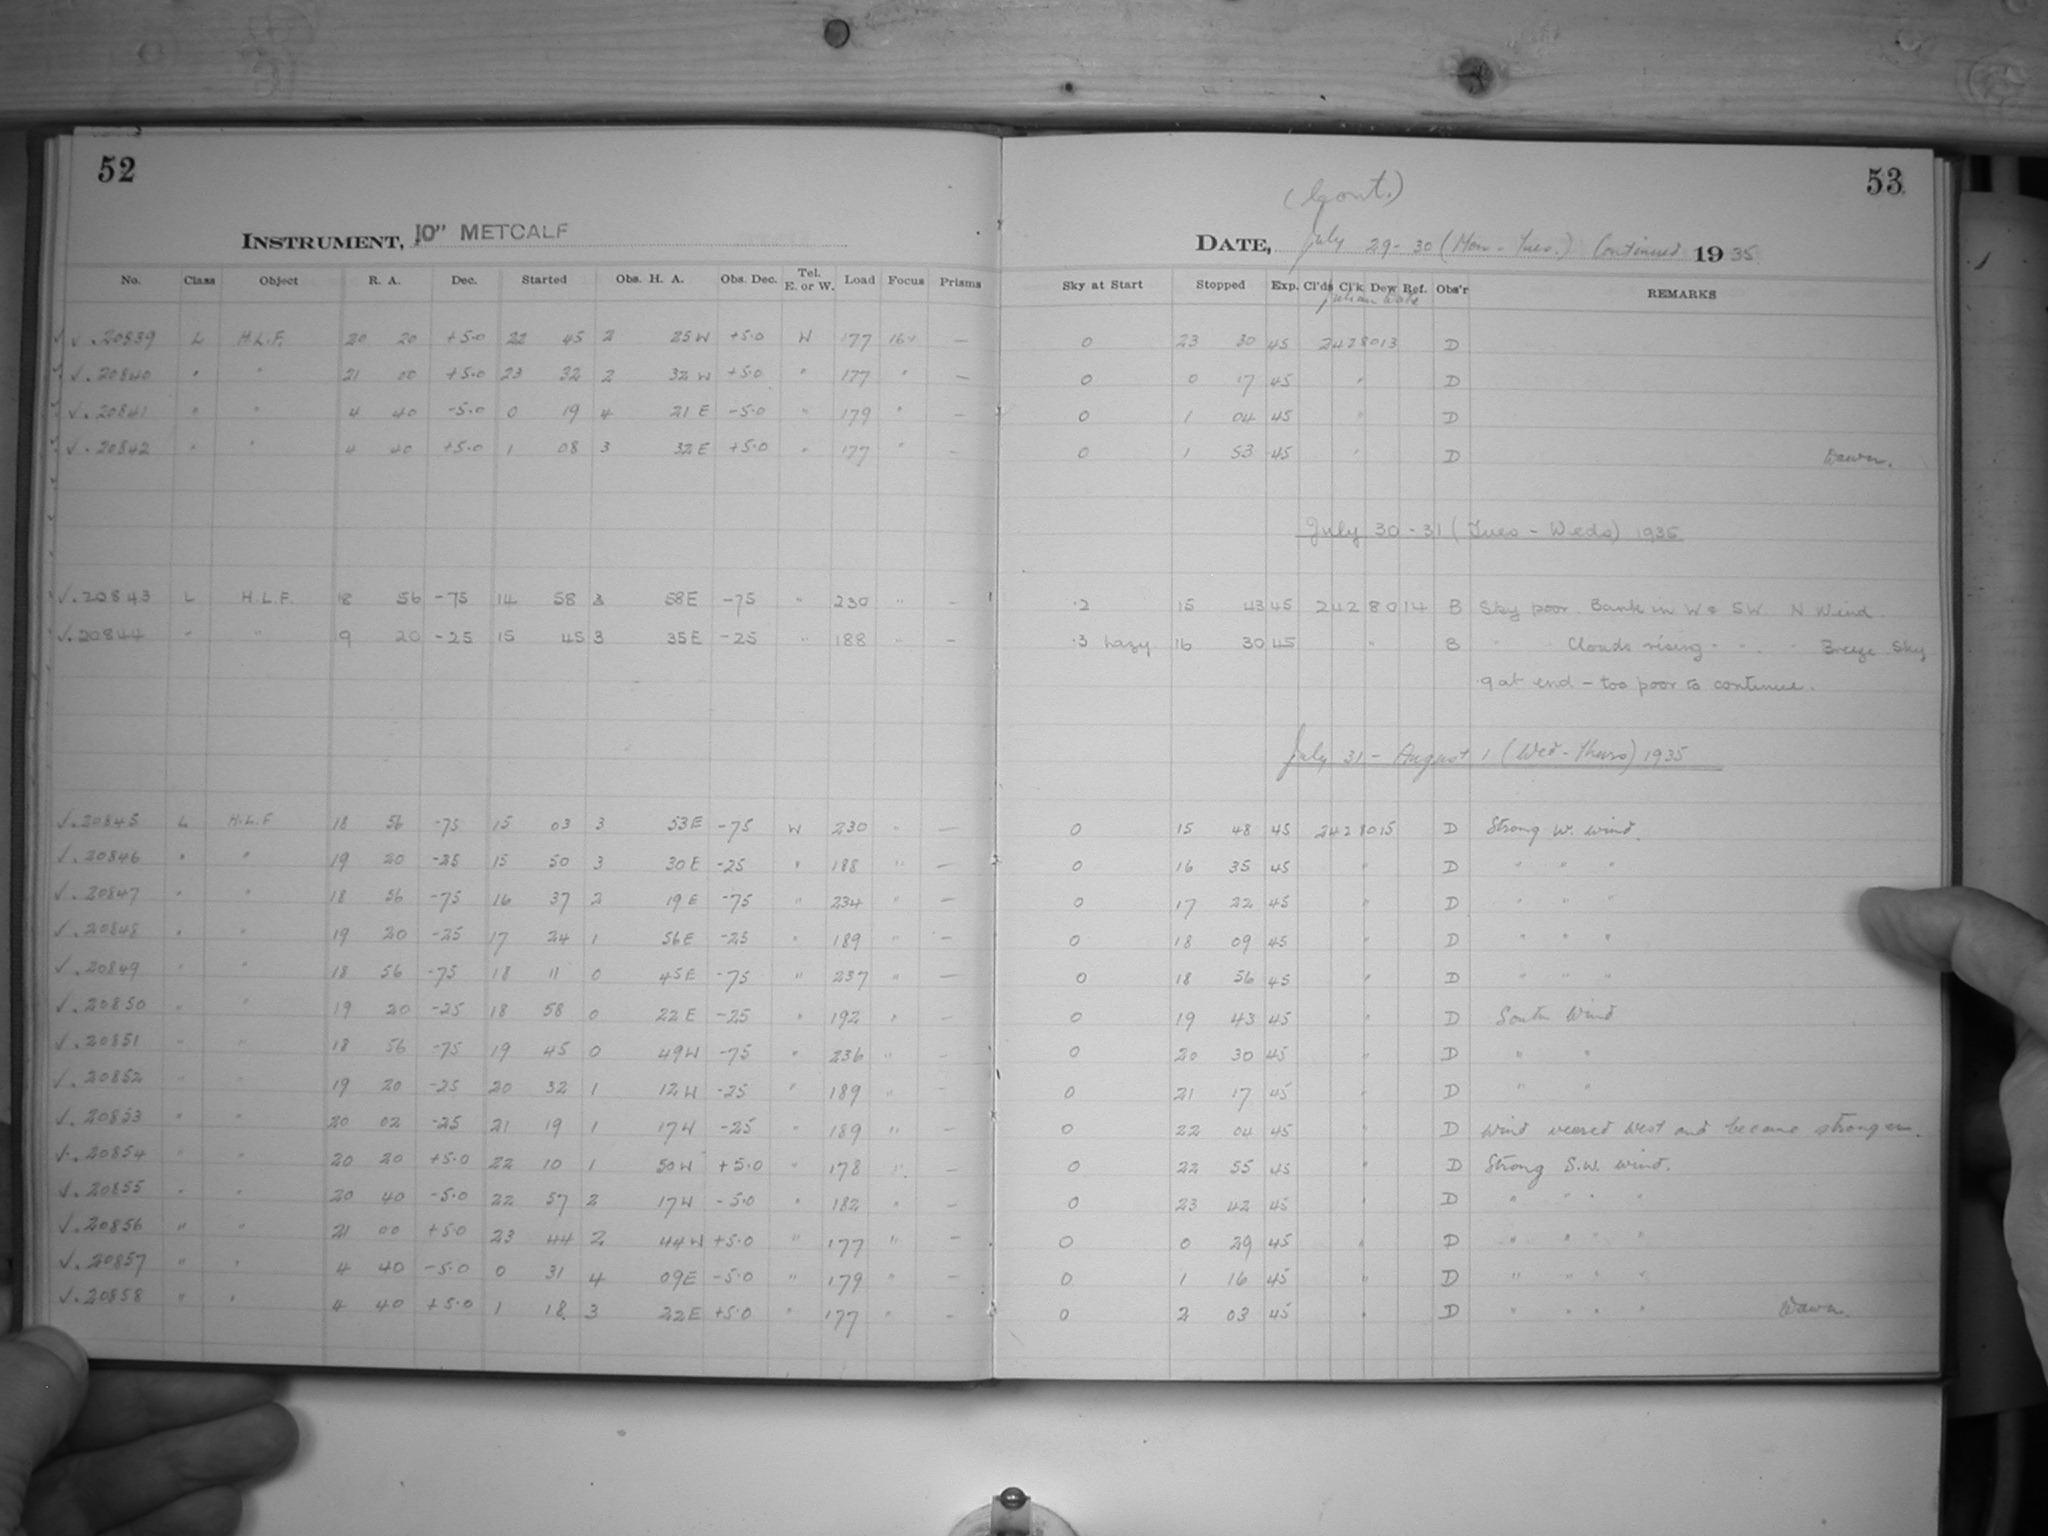 52
INSTRUMENT, 10" METCALF
No. Class Object R. A. Dec. Started Obs. H. A. Obs. Dec. Tel. E. or W. Load Focus Prisms
√ .20839 L H.L.F. 20 20 +5.0 22 45 2 25 W +5.0 W 177 —
√ .20840 " " 21 00 +5.0 23 32 2 32 W +5.0 " 177 " —
√ .20841 " " 4 40 -5.0 0 19 4 21 E -5.0 " 179 " —
√ .20842 " " 4 40 +5.0 1 08 3 32 E +5.0 " 177 " —
√ .20843 L H.L.F. 18 56 -75 14 58 3 58 E -75 " 230 " —
√ .20844 " " 9 20 -25 15 45 3 35 E -25 " 188 " —
√ .20845 L H.L.F 18 56 -75 15 03 3 53 E -75 W 230 " —
√ .20846 " " 19 20 -25 15 50 3 30 E -25 " 188 " —
√ .20847 " " 18 56 -75 16 37 2 19 E -75 " 234 " —
√ .20848 " " 19 20 -25 17 24 1 56 E -25 " 189 " —
√ .20849 " " 18 56 -75 18 11 0 45 E -75 " 237 " —
√ .20850 " " 19 20 -25 18 58 0 22 E -25 " 192 " —
√ .20851 " " 18 56 -75 19 45 0 49 W -75 " 236 " —
√ .20852 " " 19 20 -25 20 32 1 12 W -25 " 189 " —
√ .20853 " " 20 02 -25 21 19 1 17 W -25 " 189 " —
√ .20854 " " 20 20 +5.0 22 10 1 50 W +5.0 " 178 " —
√ .20855 " " 20 40 -5.0 22 57 2 17 W -5.0 " 182 " —
√ .20856 " " 21 00 +5.0 23 44 2 44 W +5.0 " 177 " —
√ .20857 " " 4 40 -5.0 0 31 4 09 E -5.0 " 179 " —
√ .20858 " " 4 40 +5.0 1 18 3 22 E +5.0 " 177 " —
53
(Cont.)
DATE, July 29-30 (Mon - Tues.) Continued 19 35
Sky at Start Stopped Exp. Cl'ds Cl'k Dew Ref. Obs'r REMARKS
Julian Date
0 23 30 45 2428013 D
0 0 17 45 " D
0 1 04 45 " D
0 1 53 45 " D Dawn.
July 30-31 (Tues - Weds) 1935
.2 15 43 45 2428014 B Sky poor. Bank in W & SW. N Wind.
.3 hazy 16 30 45 " B " Clouds rising " " " Breeze Sky
.9 at end - too poor to continue.
July 31 - August 1 (Wed - Thurs) 1935
0 15 48 45 2428015 D Strong W. wind.
0 16 35 45 " D " " "
0 17 22 45 " D " " "
0 18 09 45 " D " " "
0 18 56 45 " D " " "
0 19 43 45 " D South Wind
0 20 30 45 " D " "
0 21 17 45 " D " "
0 22 04 45 " D Wind veered West and became stronger.
0 22 55 45 " D Strong S.W. wind.
0 23 42 45 " D " " " "
0 0 29 45 " D " " " "
0 1 16 45 " D " " " "
0 2 03 45 " D " " " " Dawn.